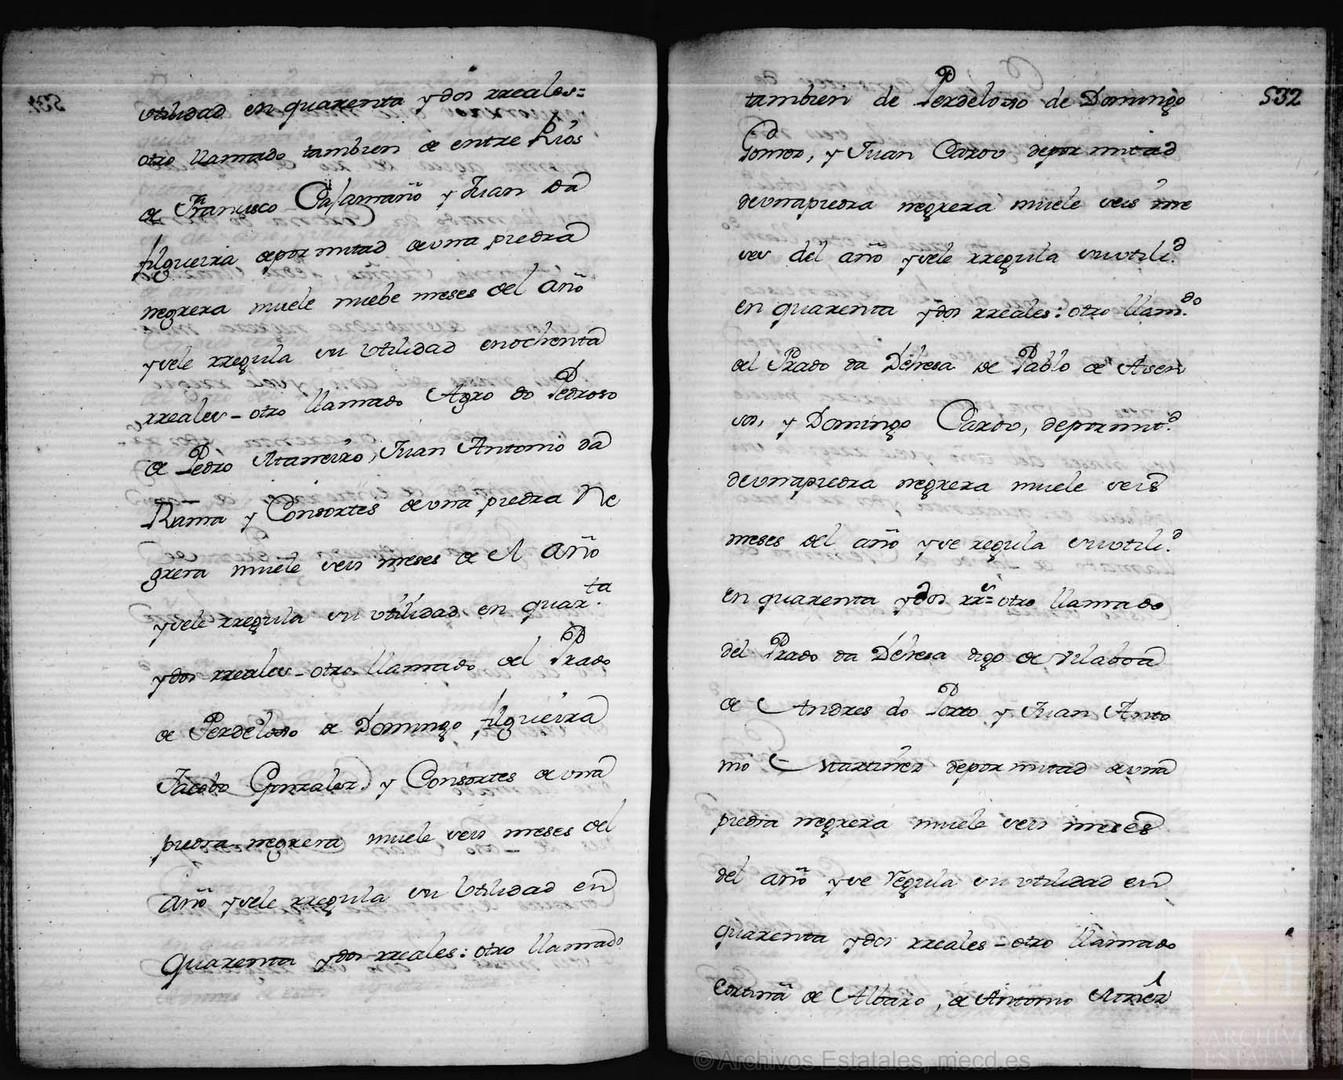 utilidad en quarenta y dos rreales=
otro llamado tambien de entre Rios
de Francisco Casamaño y Juan da
filgueira de por mitad de una piedra
negrera muele nuebe meses del año
y sele rregula su utilidad en ochenta
rreales - otro llamado Agro do Pedroso
de Pedro Ataneiro, Juan Antonio da
Rama y Consortes de una piedra Ne
grera muele seis meses de el año
y sele rregula su utilidad en quar.ta
y dos rreales - otro llamado del Prado
de Perdeloso de Domingo filgueira
Jacobo Gonzalez y Consortes de una
piedra negrera muele seis meses del
año y sele rregula su utilidad en
quarenta y dos rreales: otro llamado
532
tambien de Perdeloso de Domingo
Gomez, y Juan Cardo de por mitad
de una piedra negrera muele seis me
ses del año y sele rregula su utili.d
en quarenta y dos rreales: otro llam.do
del Prado da Devesa de Pablo de Asen
so, y Domingo Cardo, de por mit.d
de una piedra negrera muele seis
meses del año y se regula su utili.d
en quarenta y dos rr.s= otro llamado
del Prado da Devesa digo de Vilaboa
de Andres do Porto y Juan Anto
nio Martinez de por mitad de una
piedra negrera muele seis meses
del año y se regula su utilidad en
quarenta y dos rreales - otro llamado
Cortina de Albaro, de Antonio
© Archivos Estatales, mecd.es
ARCHIVOS
ESTATALES